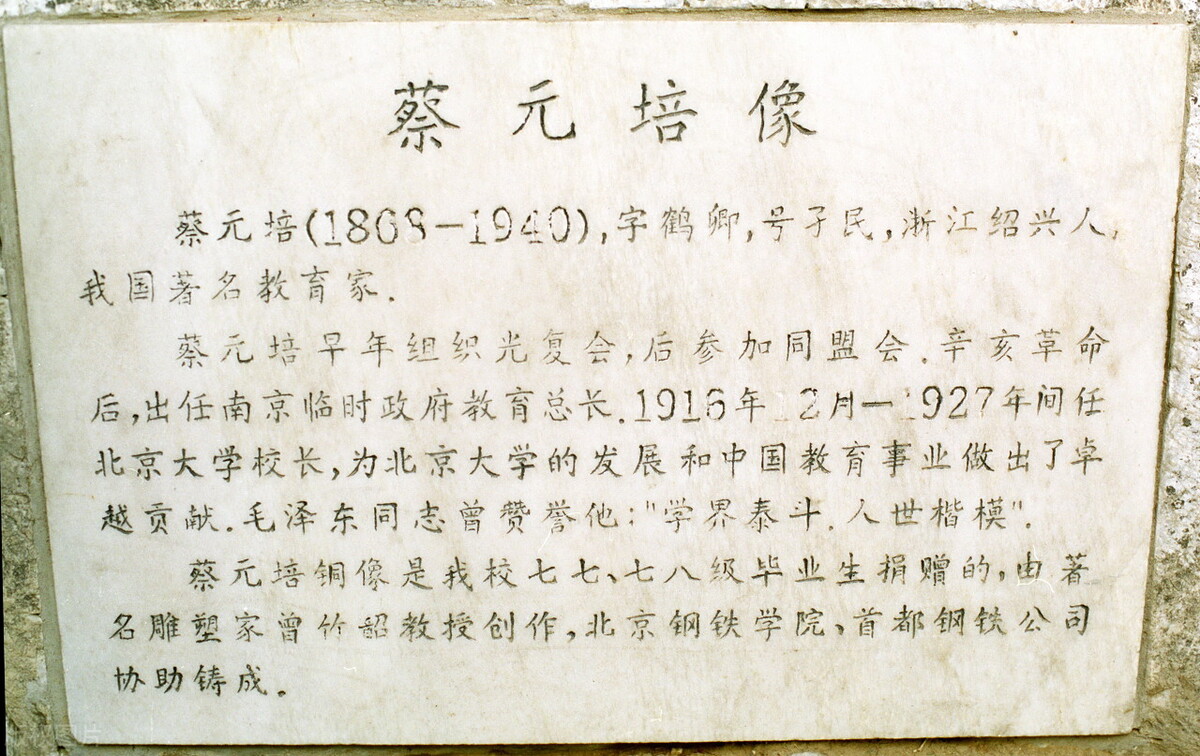 蔡元培像
蔡元培(1868-1940),字鹤卿,号孑民,浙江绍兴人,
我国著名教育家.
蔡元培早年组织光复会,后参加同盟会.辛亥革命
后,出任南京临时政府教育总长.1916年12月—1927年间任
北京大学校长,为北京大学的发展和中国教育事业做出了卓
越贡献.毛泽东同志曾赞誉他:"学界泰斗.人世楷模".
蔡元培铜像是我校七七、七八级毕业生捐赠的,由著
名雕塑家曾竹韶教授创作,北京钢铁学院、首都钢铁公司
协助铸成。